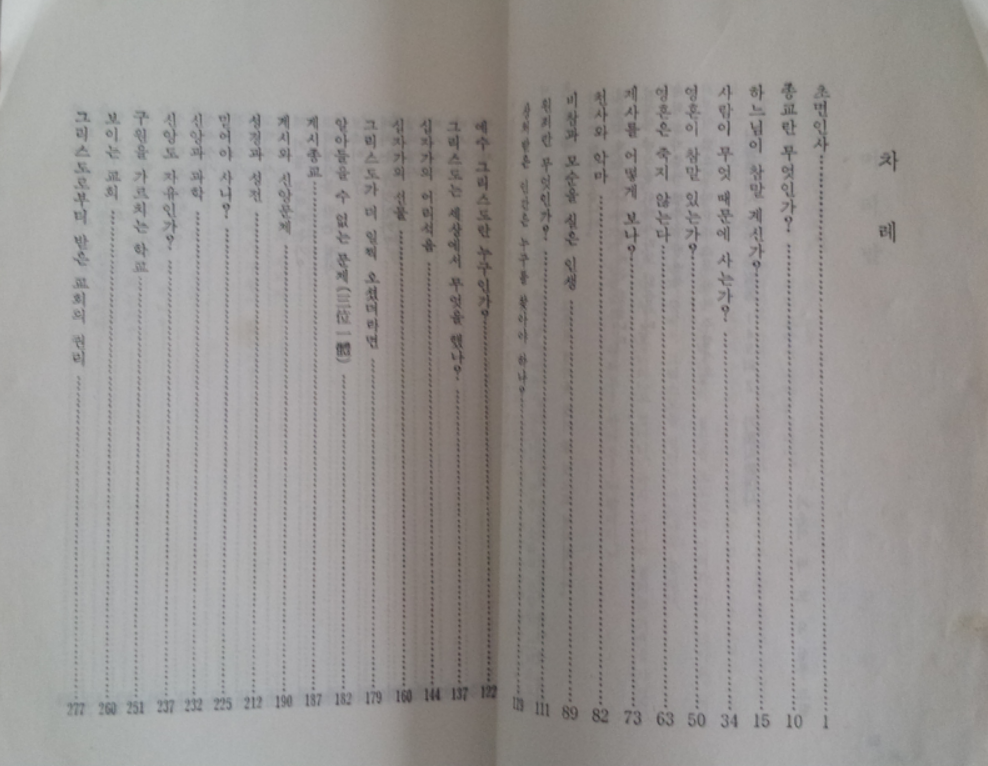 차례
초면인사 1
종교란 무엇인가? 10
하느님이 참말 계신가? 15
사람이 무엇 때문에 사는가? 34
영혼이 참말 있는가? 50
영혼은 죽지 않는다 63
제사를 어떻게 보나? 73
천사와 악마 82
비참과 모순을 실은 인생 89
원죄란 무엇인가? 111
인간은 누구를 찾아야 하나?
예수 그리스도란 누구인가? 122
그리스도는 세상에서 무엇을 했나? 137
십자가의 어리석음 144
십자가의 선물 160
그리스도가 더 일찍 오셨더라면 179
알아들을 수 없는 문제 (三位一體) 182
계시종교 187
계시와 신앙문제 190
성경과 성전 212
믿어야 사나? 225
신앙과 과학 232
신앙도 자유인가? 237
구원을 가르치는 학교 251
보이는 교회 260
그리스도로부터 받은 교회의 권리 277